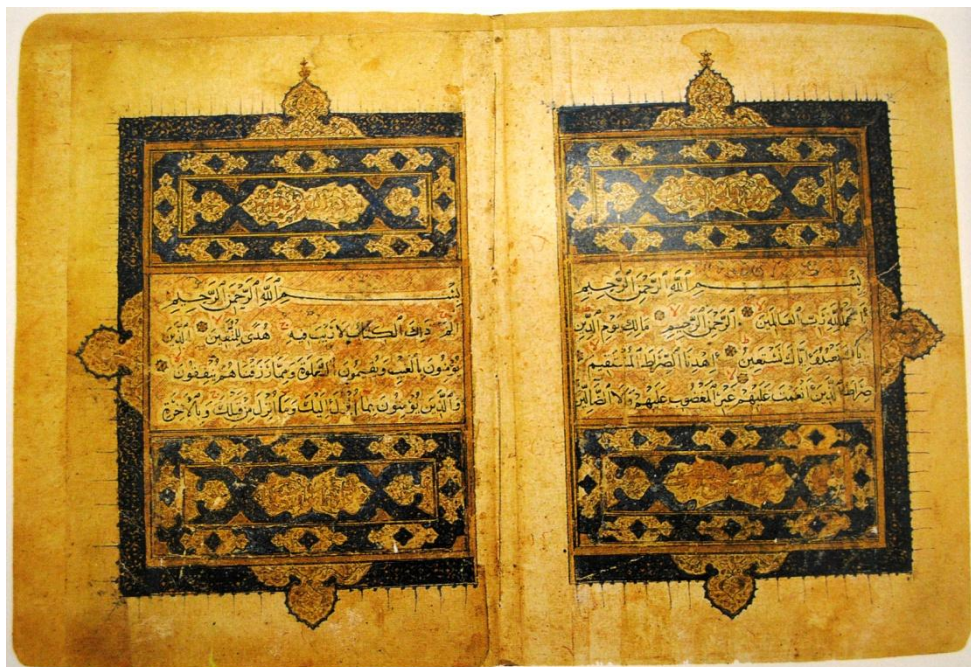 بِسْمِ ٱللَّهِ ٱلرَّحْمَٰنِ ٱلرَّحِيمِ
اَلْحَمْدُ لِلَّهِ رَبِّ الْعَالَمِينَ الرَّحْمٰنِ الرَّحِيمِ مَالِكِ يَوْمِ الدِّينِ
إِيَّاكَ نَعْبُدُ وَإِيَّاكَ نَسْتَعِينُ اِهْدِنَا الصِّرَاطَ الْمُسْتَقِيمَ
صِرَاطَ الَّذِينَ أَنْعَمْتَ عَلَيْهِمْ غَيْرِ الْمَغْضُوبِ عَلَيْهِمْ وَلَا الضَّالِّينَ
بِسْمِ ٱللَّهِ ٱلرَّحْمَٰنِ ٱلرَّحِيمِ
الم ذٰلِكَ الْكِتَابُ لَا رَيْبَ فِيهِ هُدًى لِلْمُتَّقِينَ الَّذِينَ
يُؤْمِنُونَ بِالْغَيْبِ وَيُقِيمُونَ الصَّلٰوةَ وَمِمَّا رَزَقْنَاهُمْ يُنْفِقُونَ
وَالَّذِينَ يُؤْمِنُونَ بِمَا أُنْزِلَ إِلَيْكَ وَمَا أُنْزِلَ مِنْ قَبْلِكَ وَبِالْآخِرَةِ